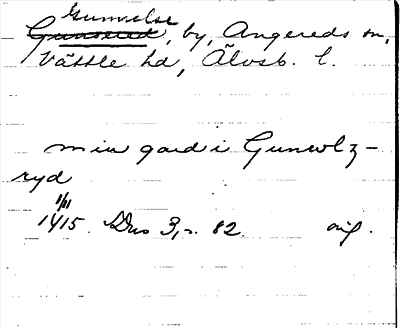 Gunnelse
Gunsered, by, Angereds sn,
Vättle hd, Älvsb. l.
min gard i Gunwlz-
ryd
1/11
1415. Dns 3, s. 82. orig.